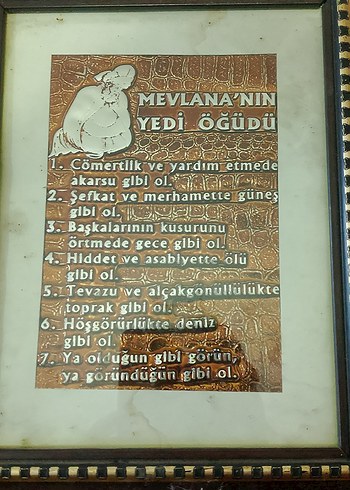 MEVLANA'NIN
YEDİ ÖĞÜDÜ
1. Cömertlik ve yardım etmede
akarsu gibi ol.
2. Şefkat ve merhamette güneş
gibi ol.
3. Başkalarının kusurunu
örtmede gece gibi ol.
4. Hiddet ve asabiyette ölü
gibi ol.
5. Tevazu ve alçakgönüllülükte
toprak gibi ol.
6. Hoşgörürlükte deniz
gibi ol.
7. Ya olduğun gibi görün,
ya göründüğün gibi ol.